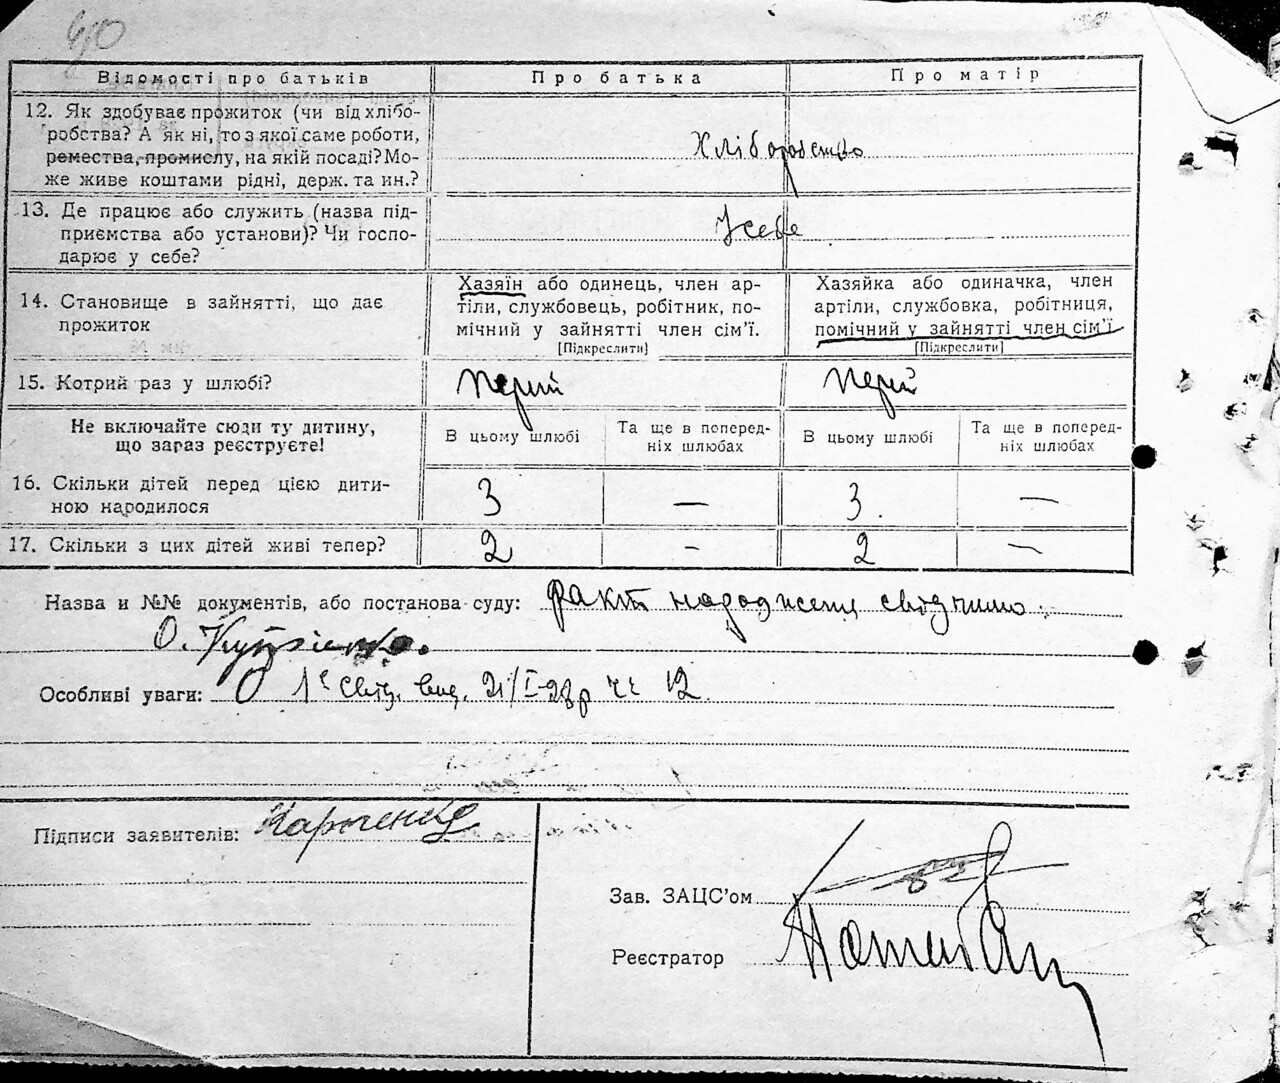 40
Відомості про батьків Про батька Про матір
12. Як здобуває прожиток (чи від хлібо-
робства? А як ні, то з якої саме роботи,
ремества, промислу, на якій посаді? Мо-
же живе коштами рідні, держ. та ин.?
Хліборобство
13. Де працює або служить (назва під-
приємства або установи)? Чи госпо-
дарює у себе?
У себе
14. Становище в зайнятті, що дає
прожиток
Хазяїн або одинець, член ар-
тіли, службовець, робітник, по-
мічний у зайнятті член сім'ї.
[Підкреслити]
Хазяйка або одиначка, член
артіли, службовка, робітниця,
помічний у зайнятті член сім'ї
[Підкреслити]
15. Котрий раз у шлюбі?
Не включайте сюди ту дитину,
що зараз реєструєте!
В цьому шлюбі
Та ще в поперед-
ніх шлюбах
В цьому шлюбі
Та ще в поперед-
ніх шлюбах
16. Скільки дітей перед цією дити-
ною народилося
3 — 3. —
17. Скільки з цих дітей живі тепер? 2 — 2 —
Назва и №№ документів, або постанова суду: факт
О.
Особливі уваги: 12
Підписи заявителів:
Зав. ЗАЦС'ом
Реєстратор